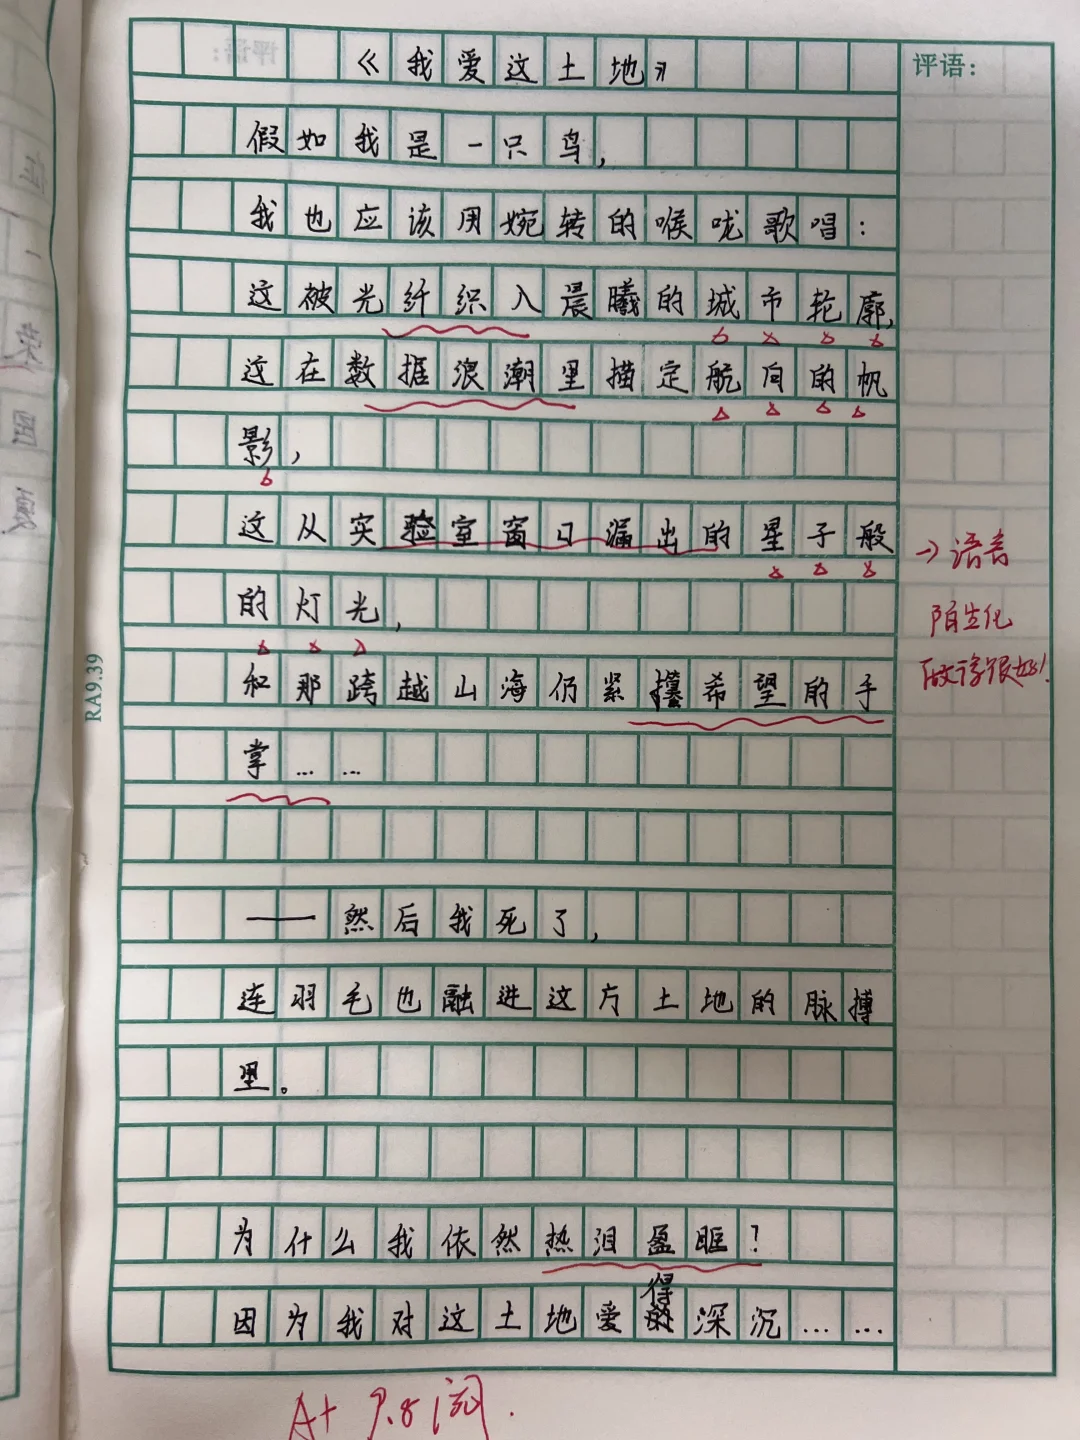 评语：
《我爱这土地》
假如我是一只鸟，
我也应该用婉转的喉咙歌唱：
这被光纤织入晨曦的城市轮廓，
这在数据浪潮里描定航向的帆
影，
这从实验室窗口漏出的星子般
的灯光，
和那跨越山海仍紧攥希望的手
掌……
——然后我死了，
连羽毛也融进这方土地的脉搏
里。
为什么我依然热泪盈眶？
因为我对这土地爱得深沉……
→语言
陌生化
做得很好！
A+ 9.8 阅.
RA9.39